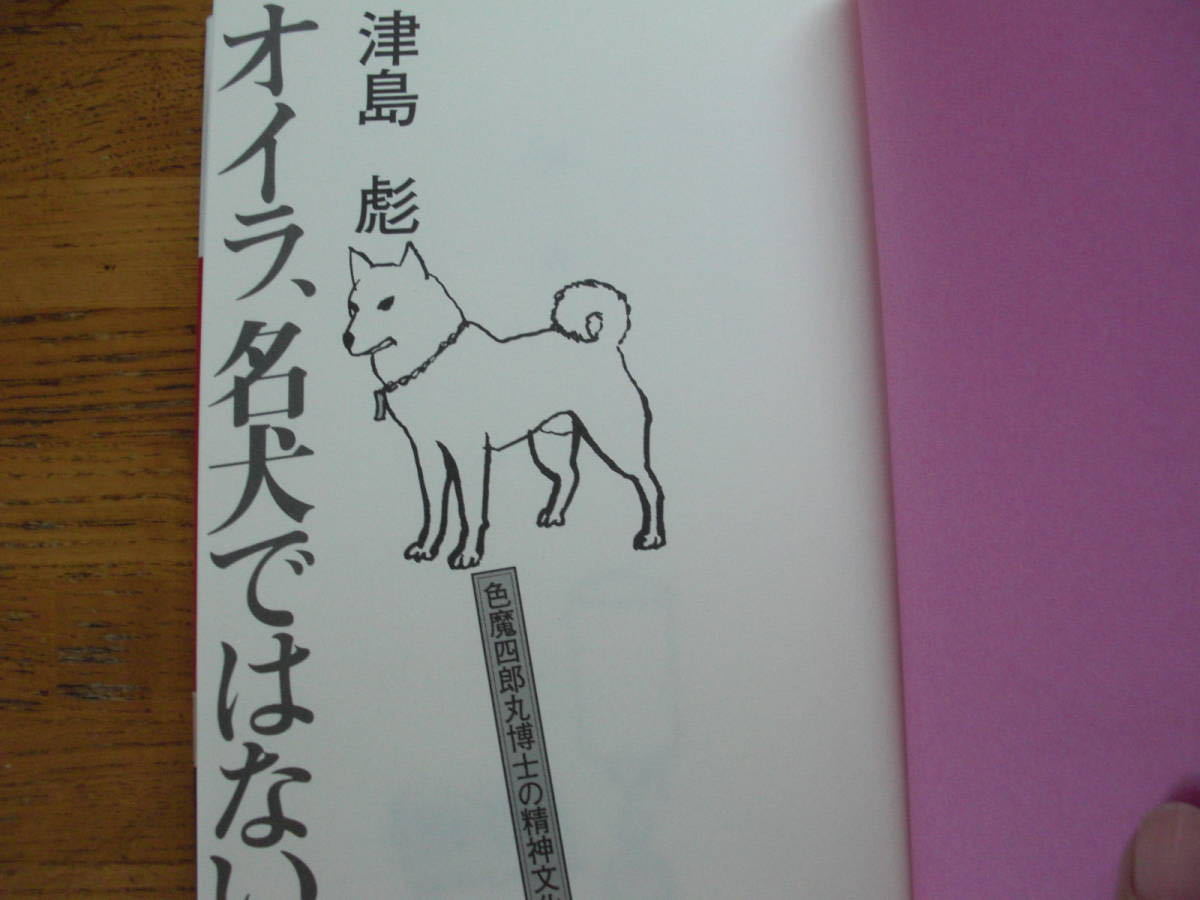 津島 彪
オイラ、名犬ではない
色魔四郎丸博士の精神文化